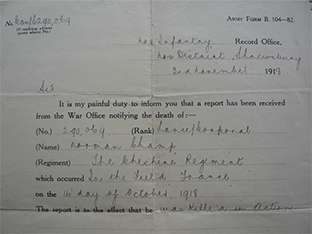 ARMY FORM B. 104—82.
No. 290,069
(If replying please
quote above No.)
Infantry Record Office,
District, Shrewsbury
2nd November 1918
Sir
It is my painful duty to inform you that a report has been received
from the War Office notifying the death of:—
(No.) 290,069 (Rank) Lance/Corporal
(Name) Norman Champ
(Regiment) The Cheshire Regiment
which occurred In the Field France
on the day of October, 1918.
The report is to the effect that he was Killed in Action